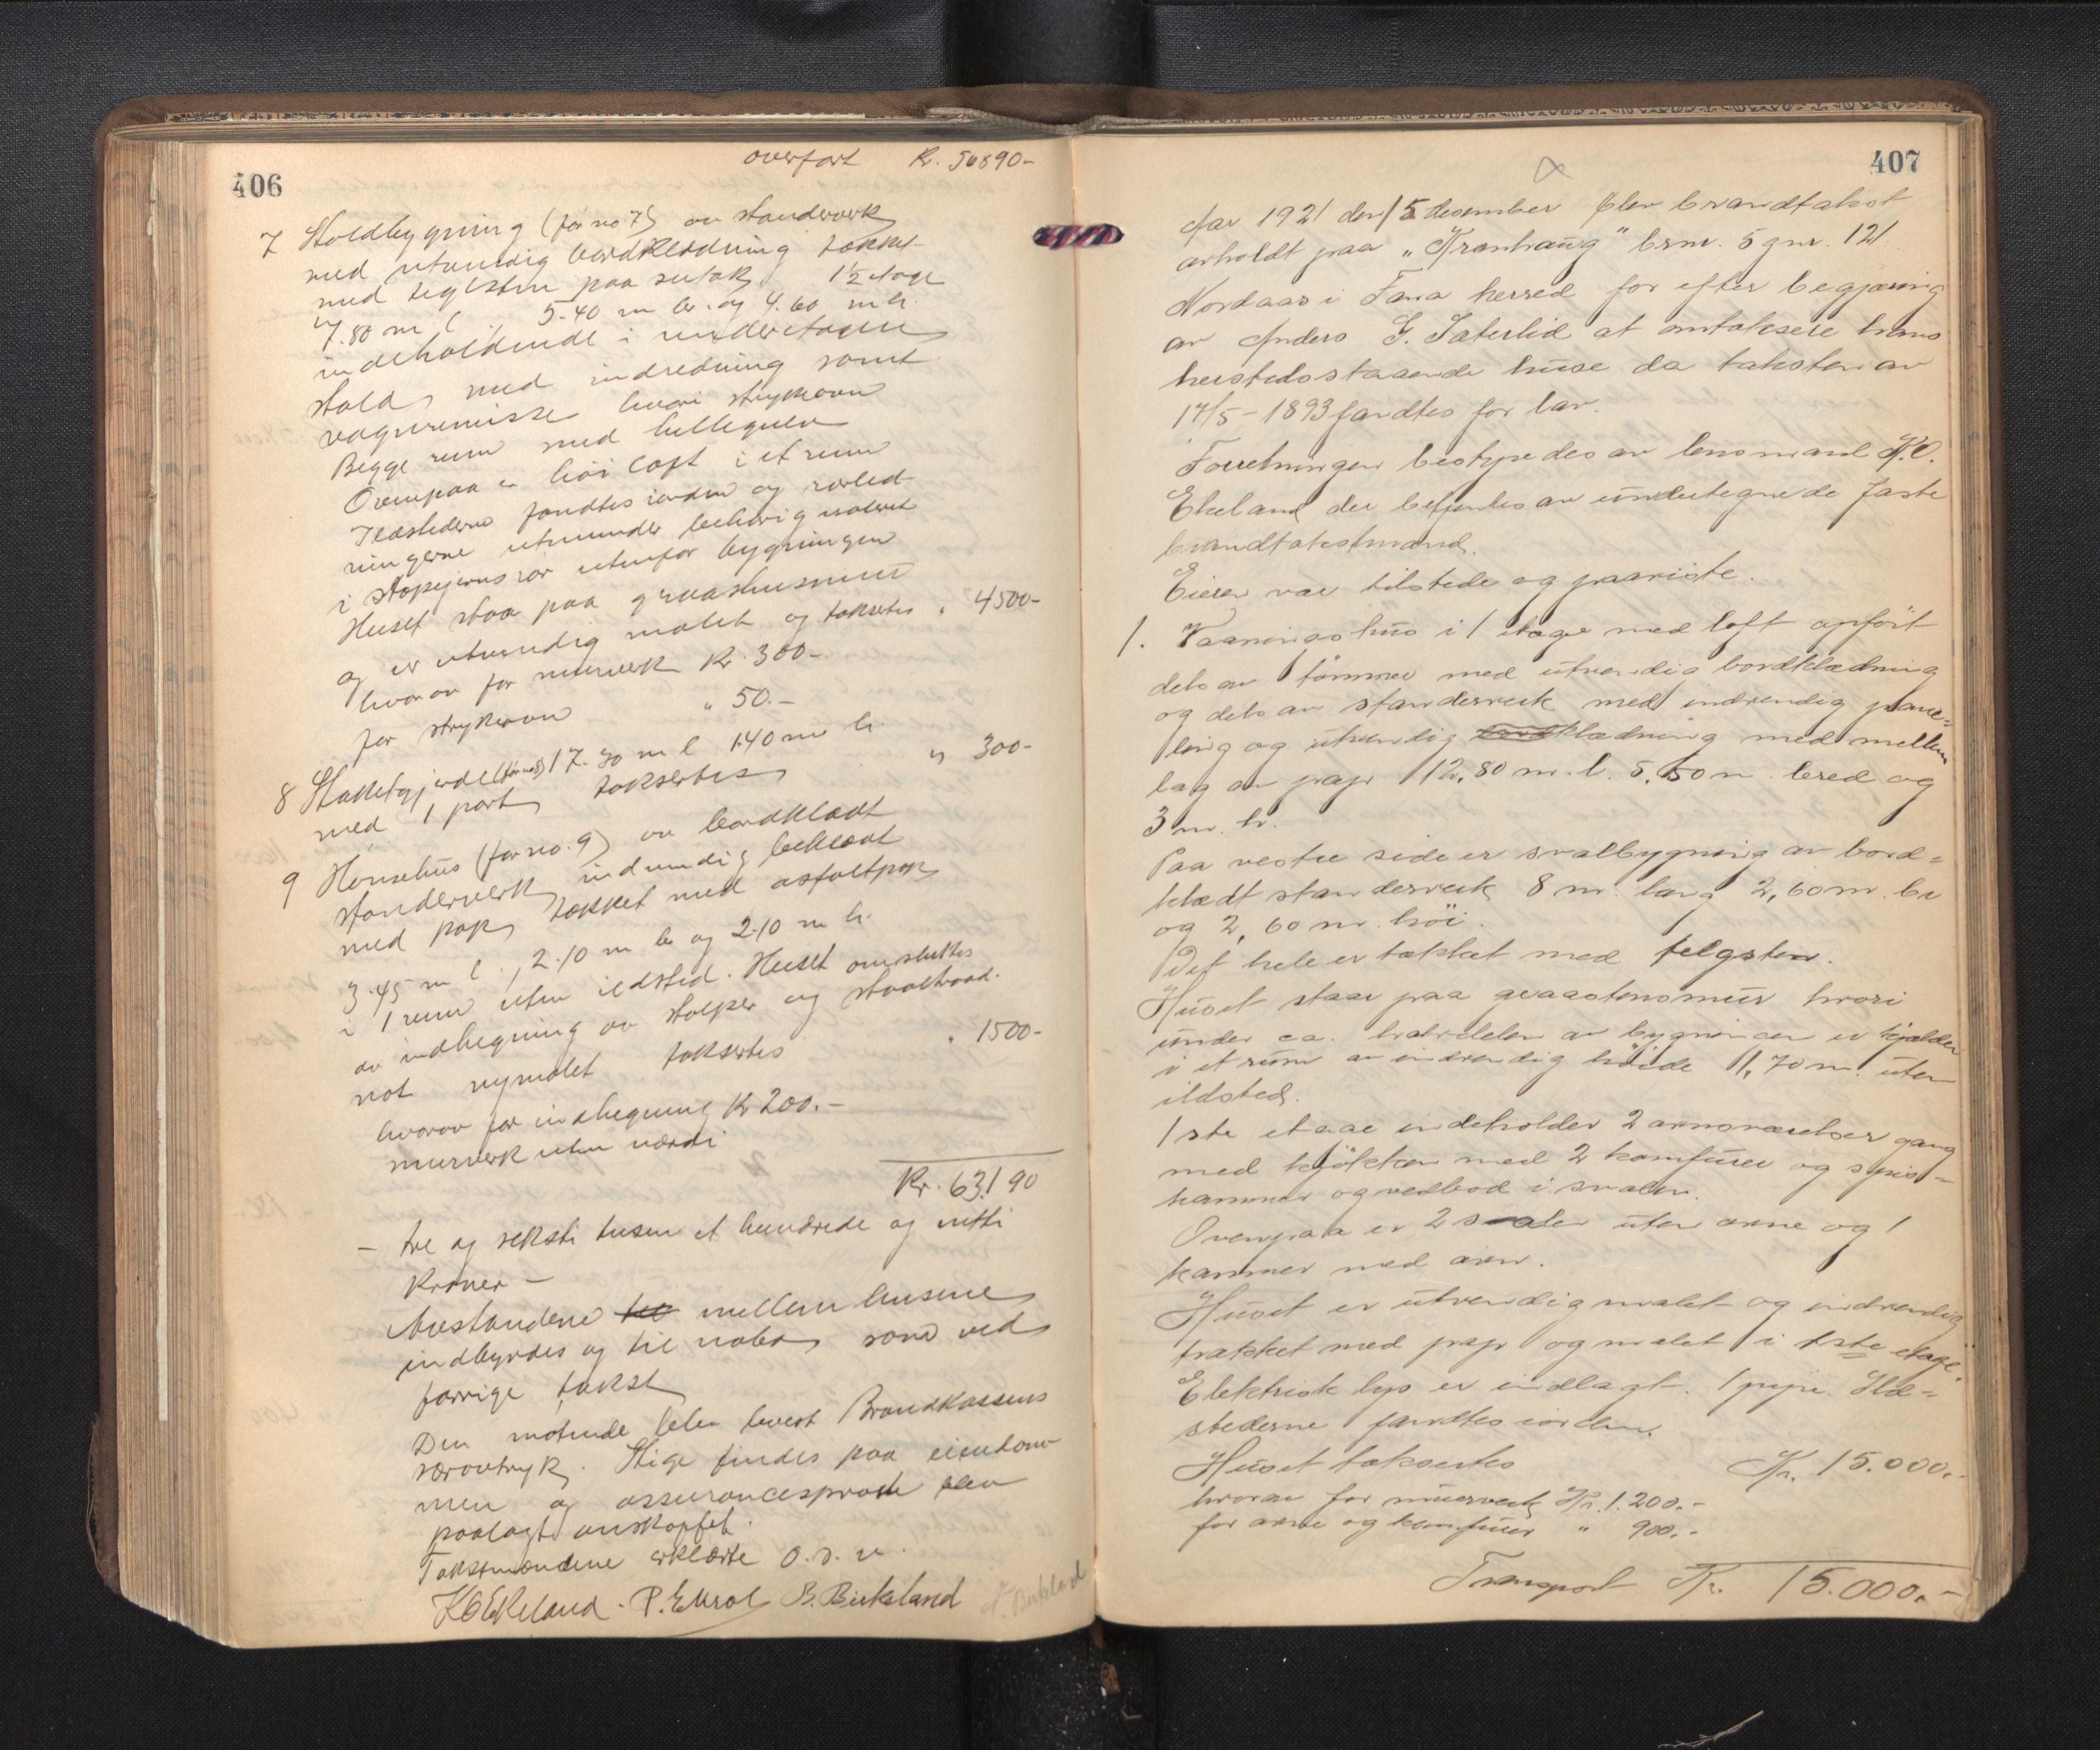 406
overført Kr. 56890-
7 Staldbygning (før no 7) av standverk
med utvendig bordklædning tækket
med teglsten paa sutak 1½ etage
7.80 m l 5.40 m br. og 4.60 m h.
indeholdende i underetagen
stald med indredning samt
vognremisse hvori strykeovn
Begge rum med hellegulv
Ovenpaa er höi loft i et rum
Ildstederne fandtes iorden og rørled-
ningerne utmunder behørig isoleret
i støpejerns rør utenfor bygningen
Huset staar paa graastensmur
og er utvendig malet og takseres " 4500-
hvorav for murverk Kr. 300-
for strykeovn " 50.-
8 Stakitgjerde (før no 8) 17.30 m l 1.40 m h
med 1 port taksertes " 300-
9 Hönsehus (før no. 9) av bordklædt
standerverk indvendig beklædt
med pap, tækket med asfaltpap
3.45 m l., 2.10 m br og 2.10 m h.
i 1 rum uten ildsted. Huset omsluttes
av indhegning av stolper og staaltraad.
not nymalet taksertes " 1500-
hvorav for indhegning Kr 200.-
murverk uten værdi
Kr. 63190
- tre og seksti tusen et hundrede og nitti
Kroner -
Avstandene til mellem husene
indbyrdes og til nabo som ved
forrige takst
Den møtende blev levert Brandkassens
særavtryk. Stige findes paa eiendom-
men og assurancesprøite blev
paalagt anskaffet.
Takstmændene erklærte o.s.v.
K O Ekeland. P. Ekrol B. Birkeland
Birkeland
407
Aar 1921 den 15 desember blev brandtakst
avholdt paa "Kronhaug" brnr. 5 gnr. 121
Nordaas i Fana herred for efter begjæring
av Anders G. Sæterlid at omtaksere hans
herstedsstaaende huse da taksten av
17/5 - 1893 fandtes for lav.
Forretningen bestyredes av lensmand K.O.
Ekeland der betjentes av undertegnede faste
brandtakstmænd.
Eieren var tilstede og paaviste.
1. Vaaningshus i 1 etage med loft opført
dels av tømmer med utvendig bordklædning
og dels av standerverk med indvendig pane-
ling og utvendig bordklædning med mellem
lag av pap 12,80 m. l. 5,50 m. bred og
3 m. h.
Paa vestre side er svalbygning av bord-
klædt standerverk 8 m. lang 2,60 m. br
og 2,60 m. höi.
Det hele er tækket med telgsten.
Huset staar paa graastensmur hvori
under ca. halvdelen av bygningen er kjælder
i et rum av indvendig höide 1,70 m. uten
ildsted.
1ste etage indeholder 2 ovnsværelser gang
med kjökken med 2 komfurer og spis-
kammer og vedbod i svalen.
Ovenpaa er 2 saler uten ovne og 1
kammer med ovn.
Huset er utvendig malet og indvendig
trækket med pap og malet i 1ste etage.
Elektrisk lys er indlagt. 1 pipe. Ild-
stederne fandtes iorden.
Huset taksertes Kr. 15.000.-
hvorav for murverk Kr. 1.200.-
for ovne og komfurer " 900.-
Transport Kr. 15.000.-